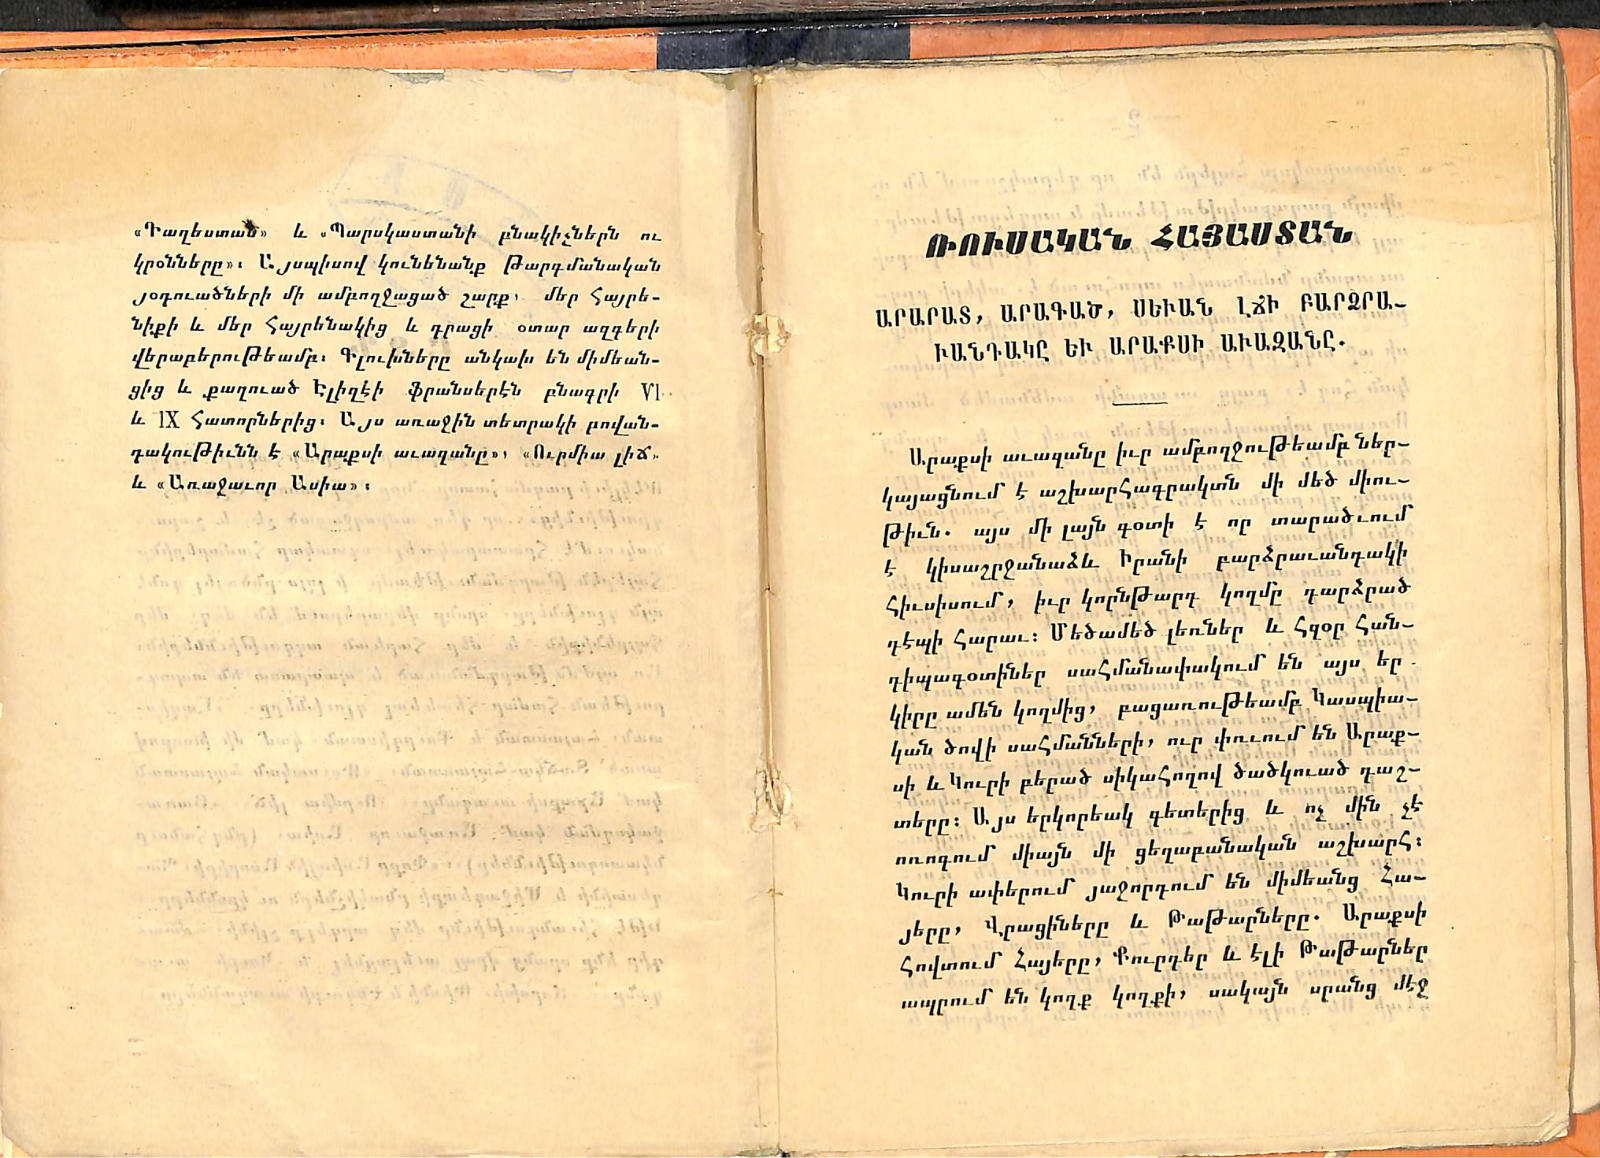 «Դաղեստան» և «Պարսկաստանի բնակիչներն ու
կրօնները»։ Այսպիսով կունենանք Թարգմանական
յօդուածների մի ամբողջացած շարք, մեր Հայրե-
նիքի և մեր Հայրենակից և դրացի օտար ազգերի
վերաբերութեամբ։ Գլուխները անկախ են միմեան-
ցից և քաղուած Էլիզէի ֆրանսերէն բնագրի VI
և IX Հատորներից։ Այս առաջին տետրակի բովան-
դակութիւնն է «Արաքսի աւազանը», «Ուրմիա լիճ»
և «Առաջաւոր Ասիա»։
ՌՈՒՍԱԿԱՆ ՀԱՅԱՍՏԱՆ
ԱՐԱՐԱՏ, ԱՐԱԳԱԾ, ՍԵՒԱՆ ԼՃԻ ԲԱՐՁՐԱ-
ՒԱՆԴԱԿԸ ԵՒ ԱՐԱՔՍԻ ԱՒԱԶԱՆԸ.
Արաքսի աւազանը իւր ամբողջութեամբ ներ-
կայացնում է աշխարհագրական մի մեծ միու-
թիւն. այս մի լայն գօտի է որ տարածւում
է կիսաշրջանաձև Իրանի բարձրաւանդակի
հիւսիսում, իւր կորնթարդ կողմը դարձրած
դէպի հարաւ։ Մեծամեծ լեռներ և հզօր հան-
դիպագօտիներ սահմանափակում են այս եր
կիրը ամեն կողմից, բացառութեամբ Կասպիա-
կան ծովի սահմանների, ուր փռւում են Արաք-
սի և Կուրի բերած սիկահողով ծածկուած դաշ-
տերը։ Այս երկորեակ գետերից և ոչ մին չէ
ոռոգում միայն մի ցեղաբանական աշխարհ։
Կուրի ափերում յաջորդում են միմեանց Հա-
յերը, Վրացիները և Թաթարները. Արաքսի
հովտում Հայերը, Քուրդեր և էլի Թաթարներ
ապրում են կողք կողքի, սակայն սրանց մէջ